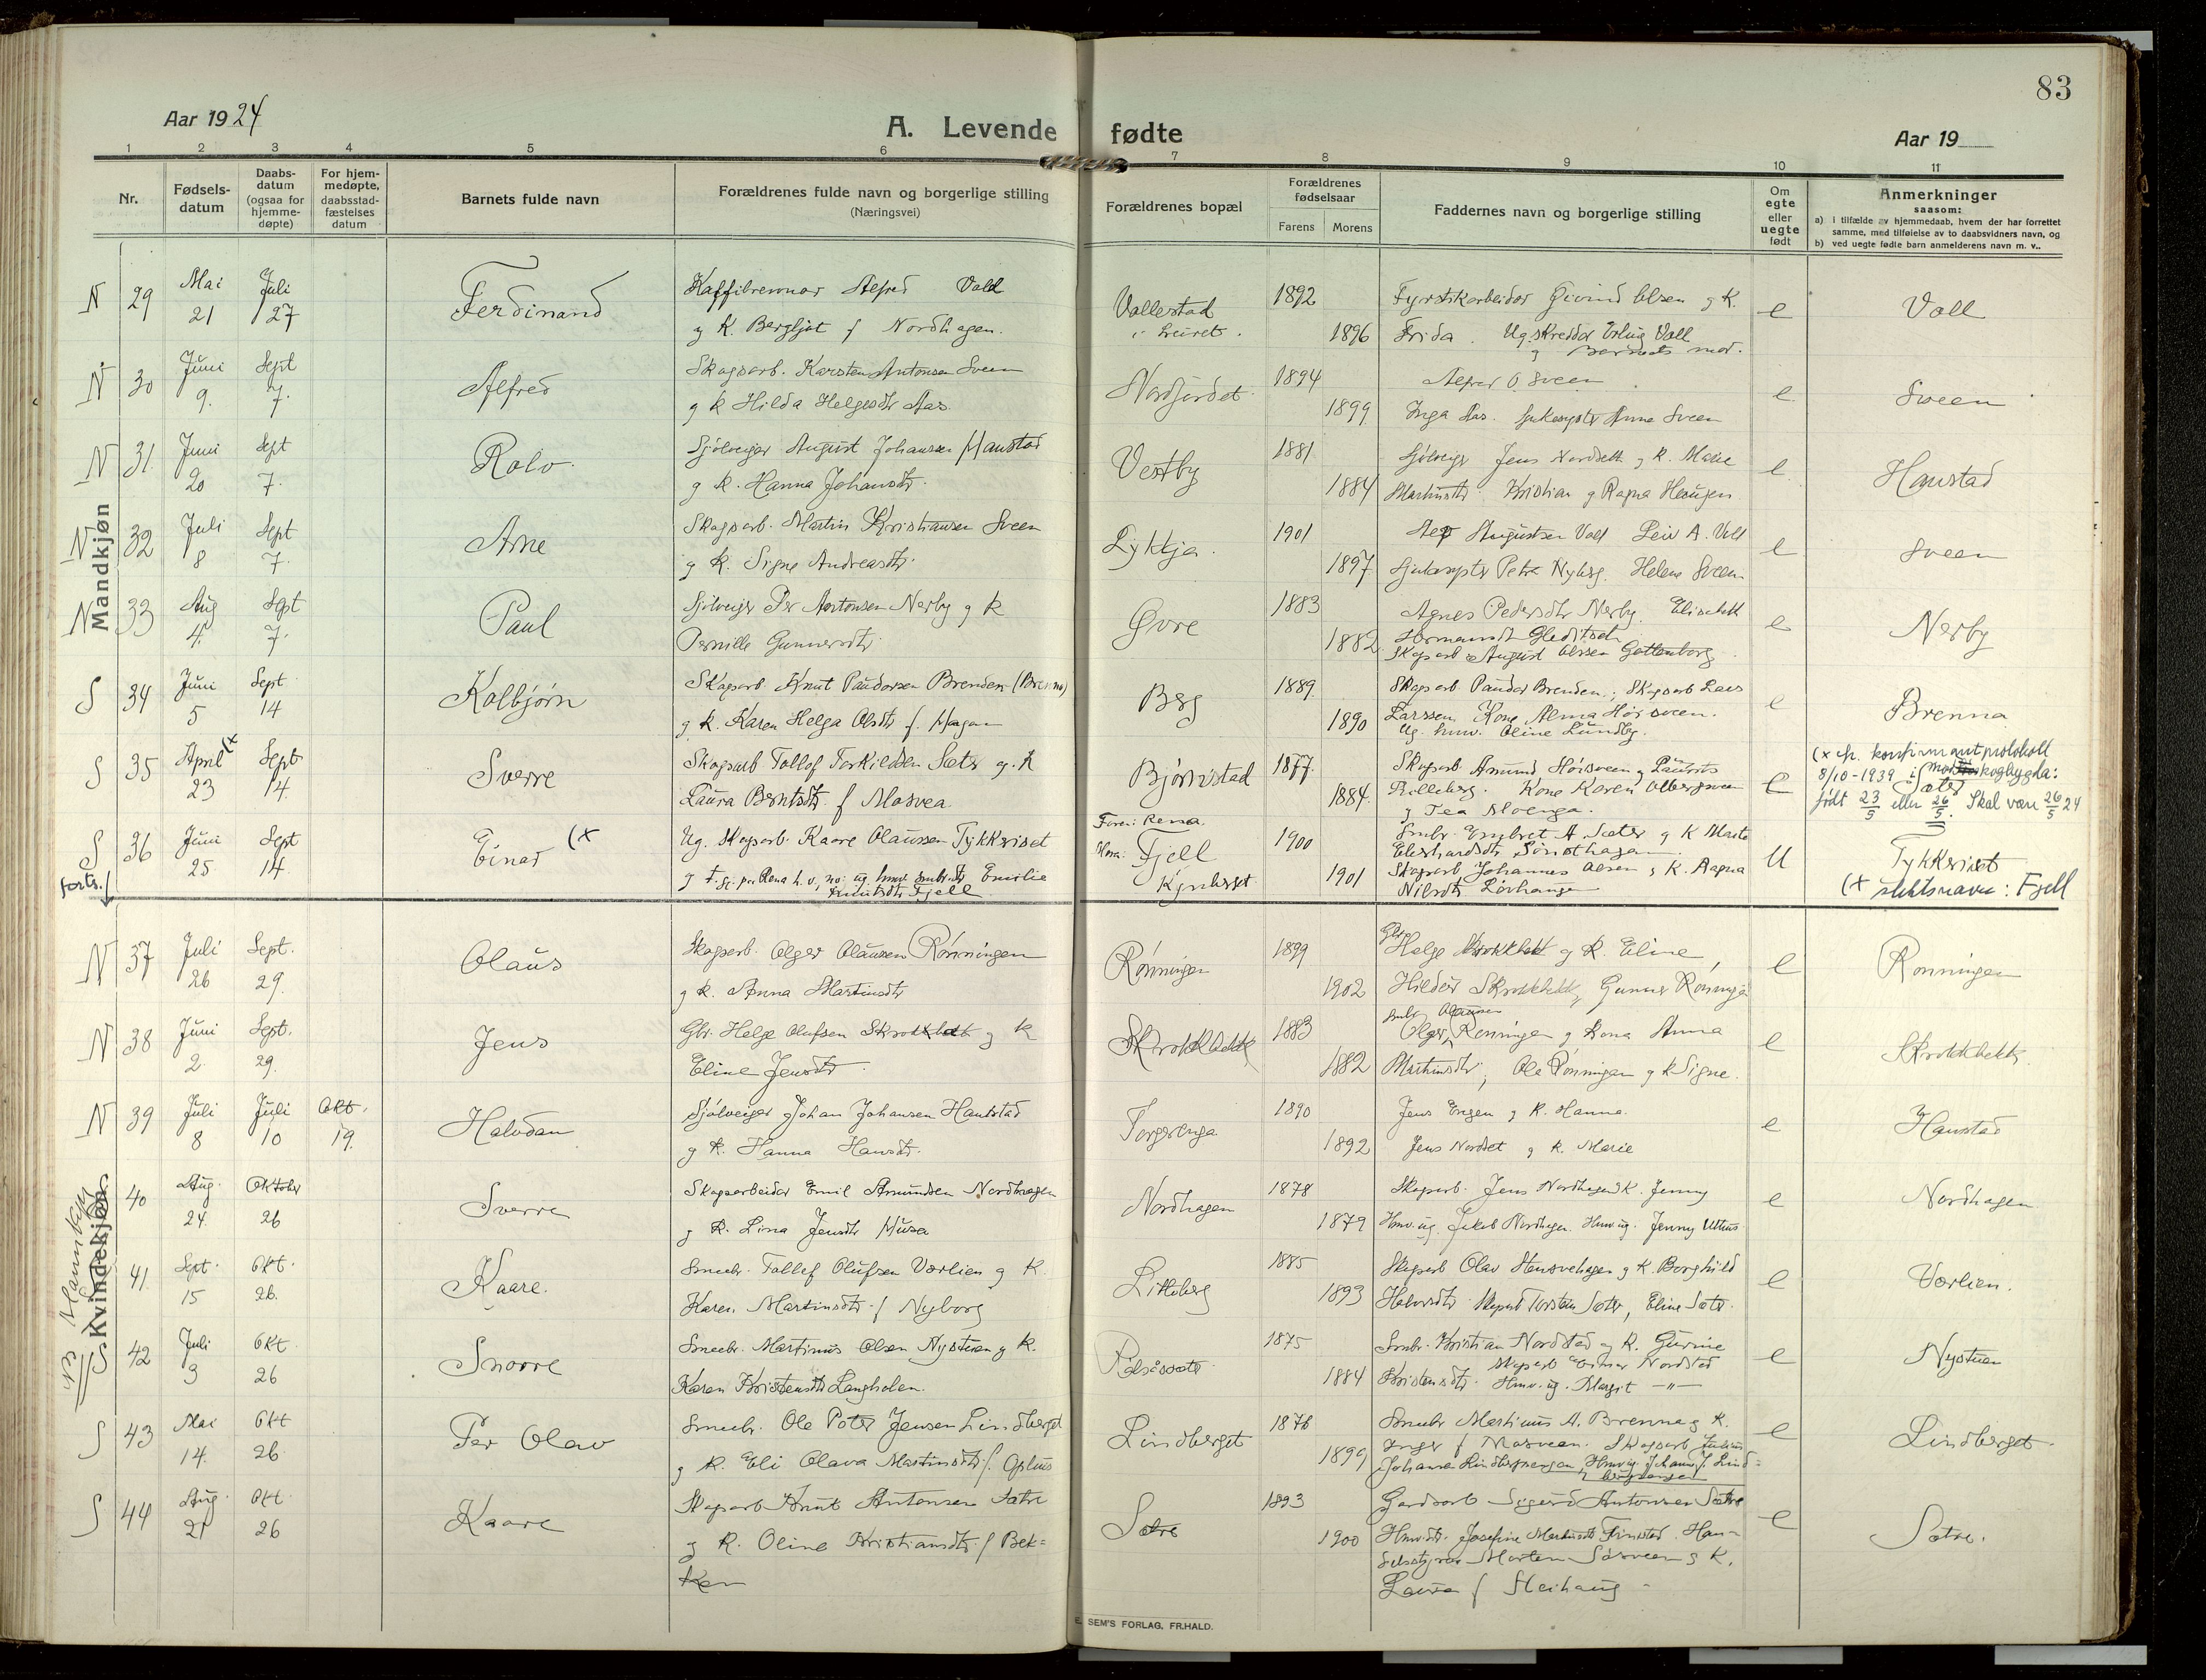 83
Aar 1924
A. Levende fødte
Aar 19
1 2 3 4 5 6 7 8 9 10 11
Nr.
Fødsels-
datum
Daabs-
datum
(ogsaa for
hjemme-
døpte)
For hjem-
medøpte,
daabsstad-
fæstelses
datum
Barnets fulde navn
Forældrenes fulde navn og borgerlige stilling
(Næringsvei)
Forældrenes bopæl
Forældrenes
fødselsaar
Farens Morens
Faddernes navn og borgerlige stilling
Om
egte
eller
uegte
født
Anmerkninger
saasom:
a) i tilfælde av hjemmedaab, hvem der har forrettet
samme, med tilføielse av to daabsvidners navn, og
b) ved uegte fødte barn anmelderens navn m. v..
Mandkjøn
N 29 Mai 21 Juli 27
Ferdinand
Kaffibrennar Alfred Voll
g K. Bergljot f Nordhagen.
Vallerstad
i Leiret.
1892
1896
Frida. Ug. skreddar Erling Voll
g Barnets mor.
e
Voll
N 30 Juni 9. Sept 7.
Alfred
Skogsarb. Karsten Antonsen Sveen
g K Hilda Helgesdtr Aas.
Nordjordet
1894
1899
Alfred O. Sveen
Inga Aas. Anna Sveen
e
Sveen
N 31 Juni 20 Sept 7.
Rolv
Sjølveigar August Johansen Haustad
g K. Hanna Johansdtr.
Vestby
1881
1884
Sjølveigr Jens Nordseth g K. Marie
Martinsdtr. Kristian g Ragna Haugen
e
Haustad
N 32 Juli 8 Sept 7.
Arne
Skogsarb. Martin Kristiansen Sveen
g K. Signe Andreasdtr.
Lykkja.
1901
1897
Augustsen Voll Leiv A. Voll
Petra Nyberg. Helene Sveen
e
Sveen
N 33 Aug 4. Sept 7.
Paul
Sjølveigr Per Antonsen Nerby g K
Pernille Gunnersdtr.
Øvre
1883
1882
Agnes Pedersdtr Nerby. Elisabeth
Hermansdtr Gleditsch
Skogsarb August Olsen Gottenborg
e
Nerby
S 34 Juni 5 Sept 14
Kolbjørn
Skogsarb. Knut Paudersen Brenden (Brenna)
g K. Karen Helga Olsdtr f. Hagan
Berg
1889
1890
Skogsarb. Pauder Brenden. Skogsarb Lars
Larssen Kone Alma Høisveen.
Ug. hmv. Oline Lundby.
e
Brenna
S 35 April (x 23 Sept 14.
Sverre
Skogsarb Tollof Torkildsen Sæter g. K
Laura Berntsdtr. f Mosvea
Bjørnstad
1877.
1884.
Skogsarb. Amund Høisveen g Laurits
Lilleberg. Kone Karen
g Tea
e
(x efr. konfirmantprotokoll
8/10-1939 i Nordskogbygda:
Sæter
født 23/5 eller 26/5. Skal være 26/5 24
S 36 Juni 25 Sept 14.
forts.
Einar (x
Ug. Skogsarb. Kaare Olaussen Tykkeriset
Emilie
Knutsdtr Fjell
Faren: Rena.
Mora: Fjell
1900
1901
Smbr. Engbret A. Sæter g K Marte
Eberhardsdtr
Skogsarb Johannes Olsen g K. Ragna
Nilsdtr
U
Tykkeriset
(x slektsnavn: Fjell
N 37 Juli 26 Sept. 29.
Olaus
Skogsarb. Olger Olaussen Rønningen
g K. Anna Martinsdtr
Rønningen
1899
1902
Gbr. Helge Skrokkbekk g K. Eline,
Hilder Skrokkbekk, Gunner Rønningen
e
Rønningen
N 38 Juni 2 Sept. 29.
Jens
Gbr. Helge Olufsen Skrokkbekk g K
Eline Jensdtr
Skrokkbekk
1883
1882
Smbr Olger Olaussen Rønningen g kona Anna
Martinsdtr, Ole Rønningen g K Signe.
e
Skrokkbekk.
N 39 Juli 8 Juli 10 Okt. 19.
Halvdan
Sjølveigar Johan Johansen Haustad
g K. Hanna Hansdtr.
Torgerenga
1890
1892
Jens Engen g K. Hanna.
Jens Nordset g K. Marie
e
Haustad
NB Mannkyn
Kvindekjøn
40 Aug. 24. Oktober 26
Sverre
Skogsarbeidar Emil Amundsen Nordhagen
g K. Lina Jensdtr Husa
Nordhagen
1878
1879
Skogsarb. Jens Nordhagen K. Jenny
Hmv ug. Jakob Nordhagen. Hmv ug. Jenny
e
Nordhagen
41 Sept. 15 Okt. 26.
Kaare.
Smbr. Tollef Olufsen Værlien g K.
Karen Martinsdtr f Nyborg
Litleberg
1885
1893
Skogsarb Olav g K. Borghild
Halvorsdtr Skogsarb Torstein Sæter, Eline Sæter.
e
Værlien.
S. 42 Juli 3 Okt. 26
Snorre
Smbr. Martinus Olsen Nystuen g K.
Karen Kristensdtr Langholen.
1875
1884
Smbr. Kristian Nordstad g K. Gurine
Kristensdtr. Skogsarb Einar Nordstad
Hmv. ug. Margit —"—
e
Nystuen
S 43 Mai 14. Okt 26.
Per Olav
Smbr. Ole Peter Jensen Lindberget
g K. Eli Olava Martinsdtr f. Oplus
Lindberget
1876
1899
Smbr Martinus A. Brenna g K.
Inger f Mosveen. Skogsarb Julius
Johansen Hmv ug. Johanne f. Lind=
e
Lindberget.
S 44 Aug. 21 Okt. 26
Kaare
Skogsarb Knut Antonsen Sætre
g K. Oline Kristiansdtr f Bek=
ken
Sætre
1893
1900
Gardsarb Sigurd Antonsen Sætre
Hmvdtr. Josefine Martinsdtr Finstad. Han-
delsstyrar Morten Sørveen g K.
Laura f Steihaug
e
Sætre.
SEM'S FORLAG, FR.HALD.